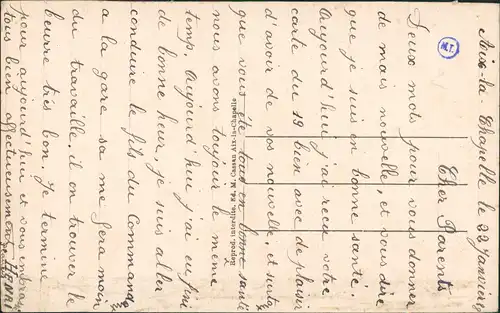 Aix-la-Chapelle le 22 Janvier
Cher Parents
Deux mots pour vous donner
de mais nouvelle, et vous dire
que je suis en bonne santé.
Aujourd'hui j'ai recu votre
carte du 19 bien avec de plaisir
d'avoir de vos nouvelle, et surtout
que vous éte tous en bonne santé
nous avons toujour le même
temp. Aujourd'hui j'ai eu fini
de bonne heur, je suis aller
conduire le fils du Commandant
a la gare sa me fera moin
du travaille. il on trouver le
beurre très bon. Je termine
pour aujourd'hui et vous embrasse
tous bien affectueusement
HENRI
Reprod. interdite. Ed. M. Cassan Aix-la-Chapelle